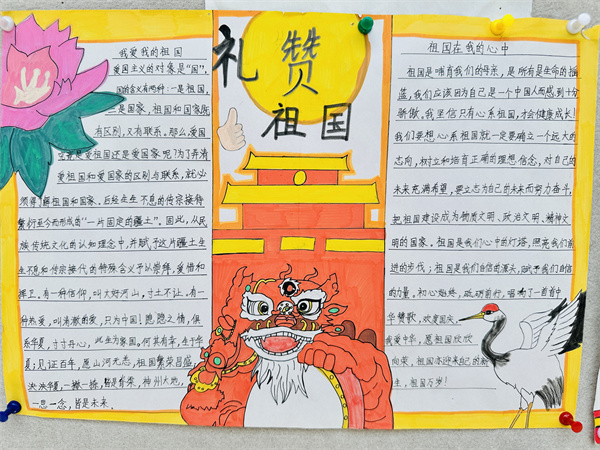 我爱我的祖国
爱国主义的对象是“国”,
国的含义有两种:一是祖国,
二是国家,祖国和国家既
有区别,又有联系。那么爱国
主要是爱祖国还是爱国家呢?为了弄清
爱祖国和爱国家的区别与联系,就必
须得了解祖国和国家。后经在生不息的传宗接种
繁衍至今而形成的“一片固定的疆土”。因此,从民
族传统文化的认知理念中,并赋予这片疆土生
生不息和传宗接代的特殊含义予以崇拜,爱惜和
捍卫。有一种信仰,叫大好河山,寸土不让。有一
种热爱,叫清澈的爱,只为中国!悠悠之情,佩
系华夏,寸寸丹心,此生为家国。何其有幸,生于华
夏;见证百年,愿山河无恙,祖国繁荣昌盛。
泱泱华夏,一撇一捺,皆是脊梁,神州大地,
一思一念,皆是未来。
礼赞
祖国
祖国在我的心中
祖国是哺育我们的母亲,是所有是生命的摇
篮,我们应该因为自己是一个中国人而感到十分
骄傲。我坚信只有心系祖国,才会健康成长!
我们要想心系祖国就一定要确立一个远大的
志向,树立和培育正确的理想信念,对自己的
未来充满希望,要立志为自己的未来而努力奋斗,
把祖国建设成为物质文明、政治文明、精神文
明的国家。祖国是我们心中的灯塔,照亮我们前
进的步伐;祖国是我们自信的源头,赋予我们自信
的力量。初心始终,砥砺前行,唱响了一首首
华赞歌,欢度国庆,
我爱中华,愿祖国欣欣
向荣,祖国亦迎来自己的新
生,祖国万岁!